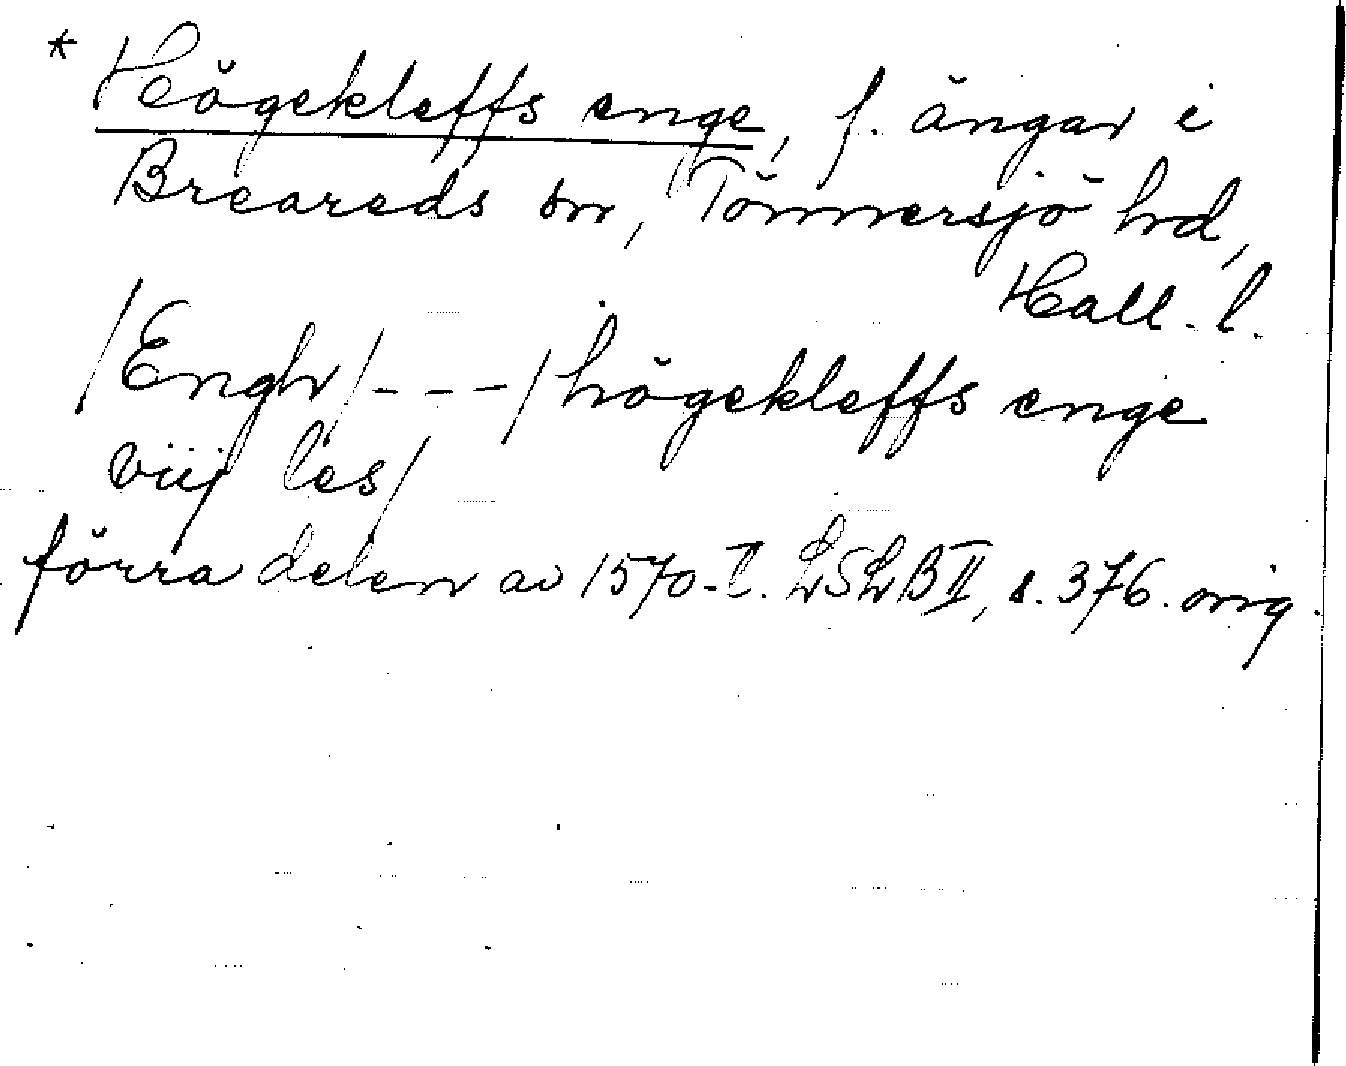 * Högekleffs enge, f. ängar i
Breareds sn, Tönnersjö hd,
Hall. l.
/Engh/ - - - /högekleffs enge
viij les/
förra delen av 1570-t. LSLB II, s. 376. orig.